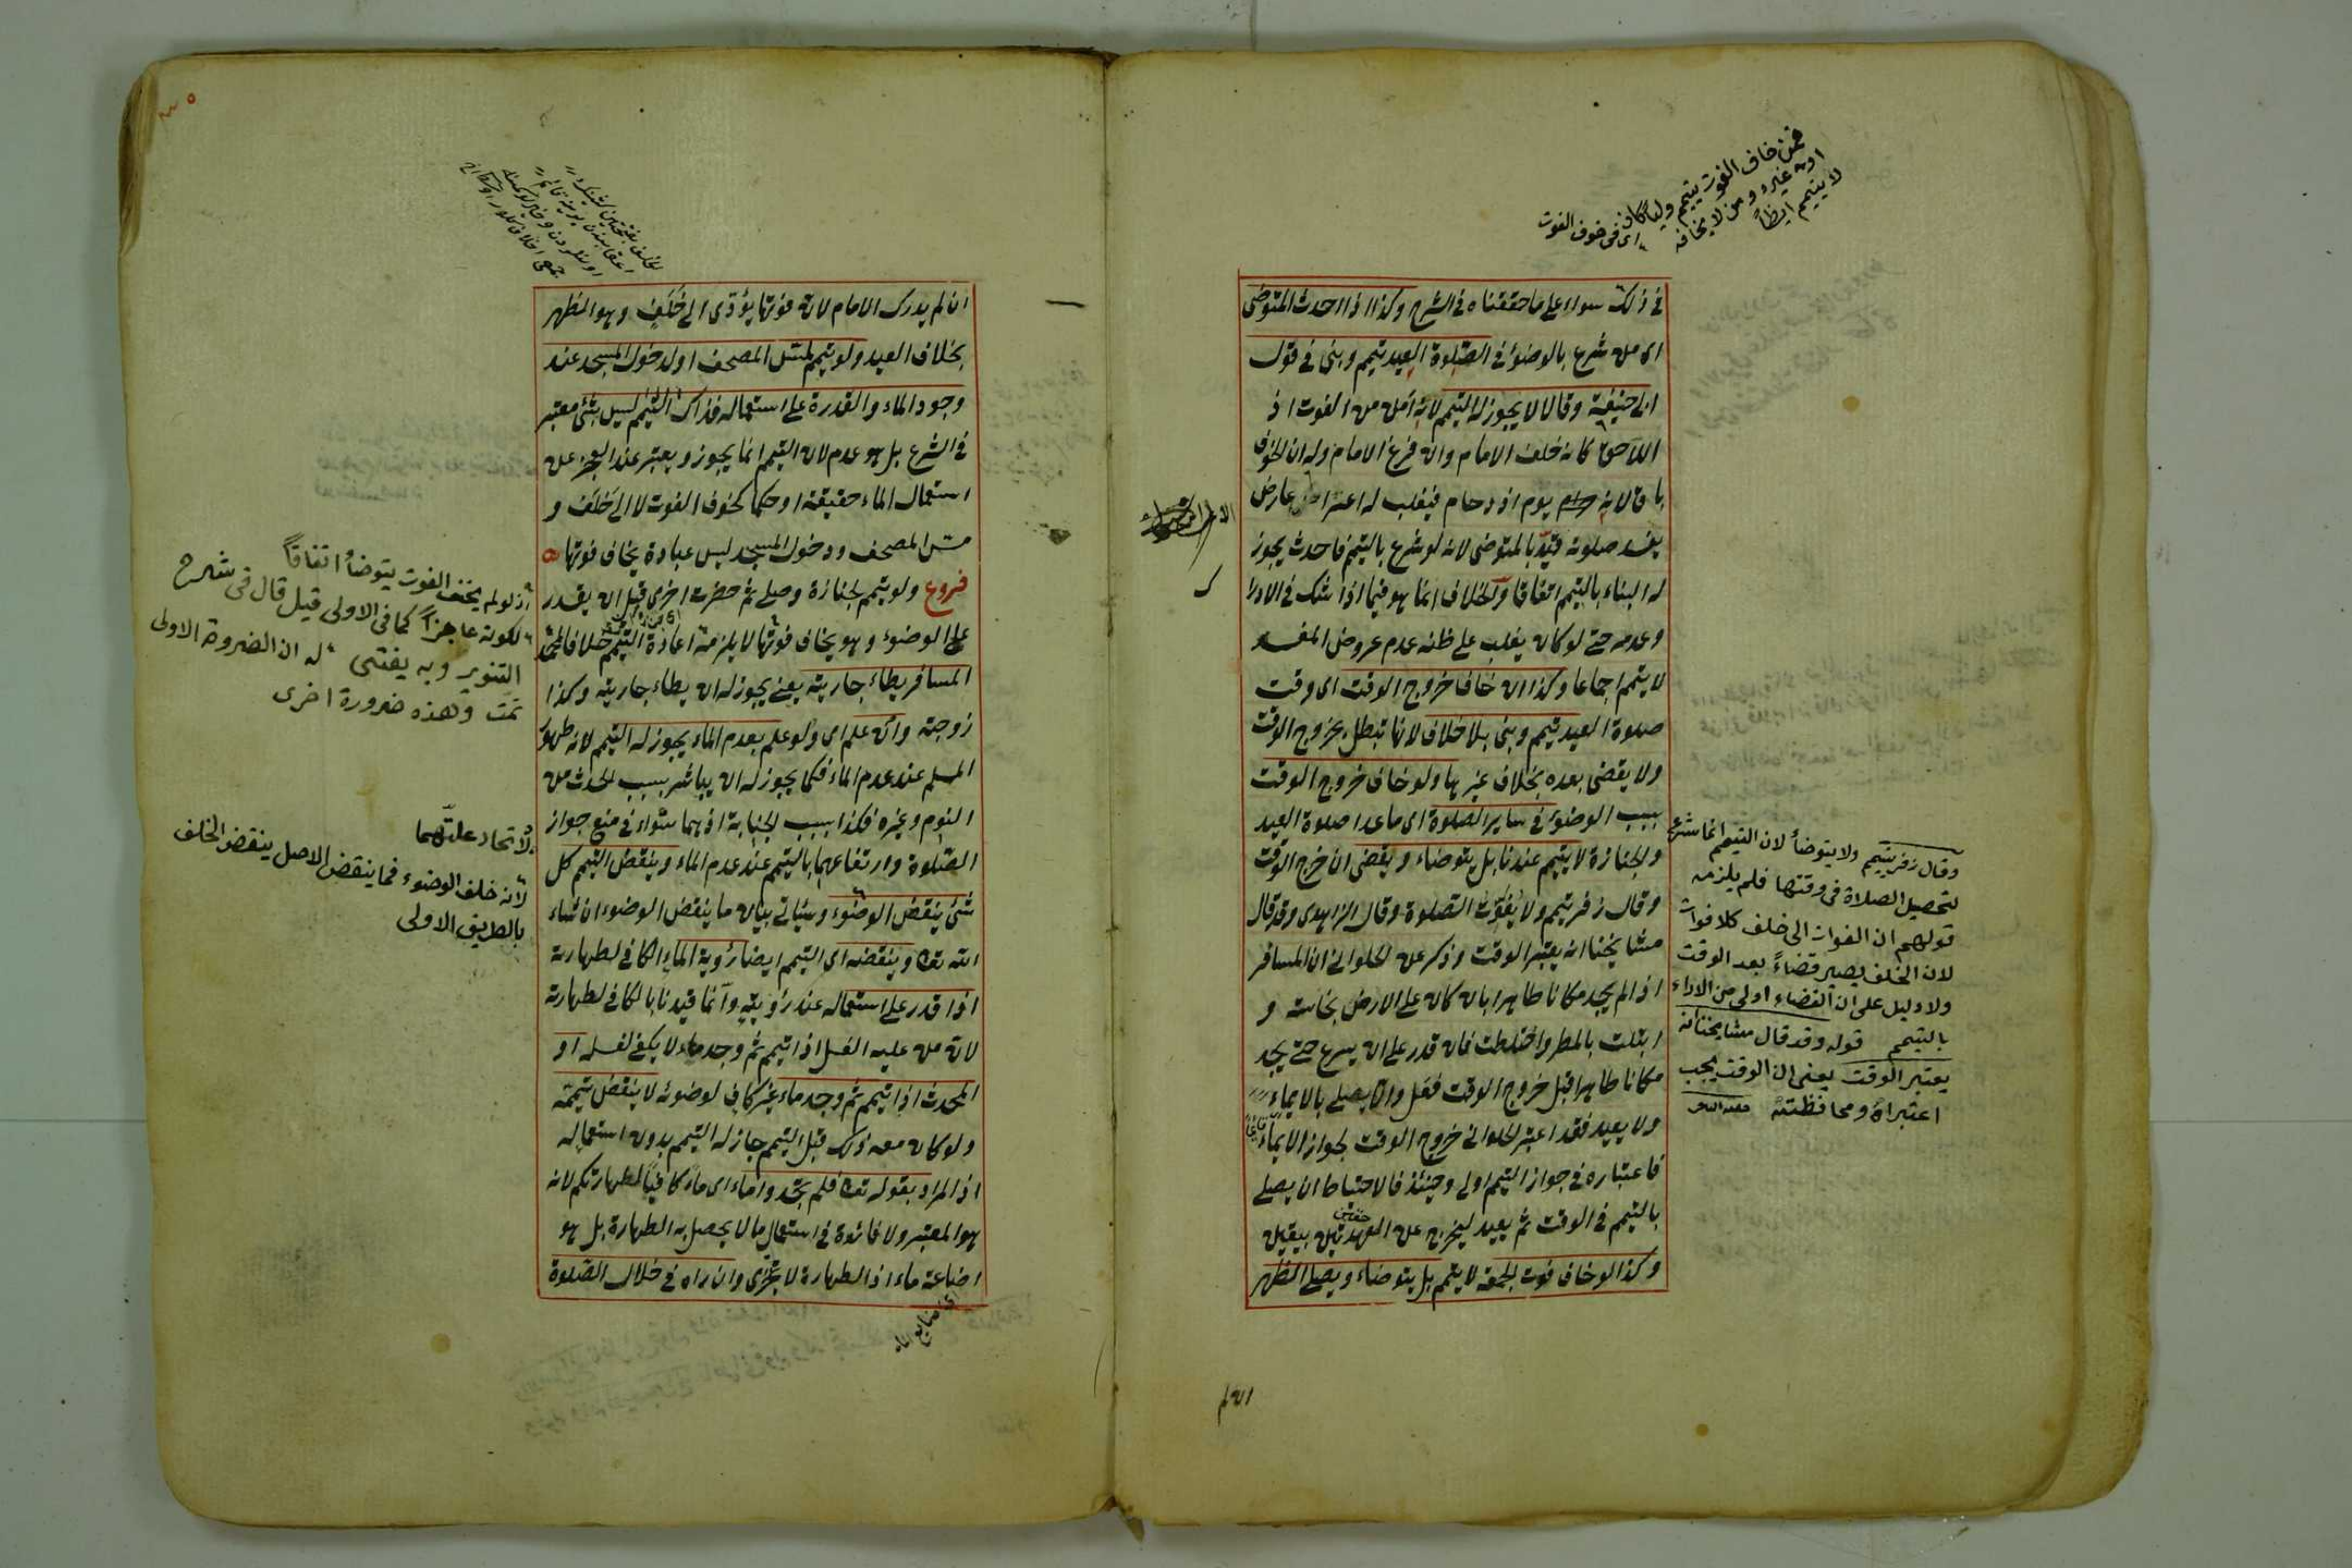 فمن خاف الفوت يتيمم وليا كان
او غيره ومن لا يخافه
لا يتيمم ايضاً
اى فى خوف الفوت
فى ذلك سواء على ما حققناه فى الشرح وكذا اذا احدث المتوضى
اى من شرع بالوضوء فى الصلوة العيد تيمم وبنى فى قول
ابى حنيفة وقالا لا يجوز له التيمم لانه أمن من الفوت اذ
اللاحق كانه خلف الامام وان فرغ الامام وله ان الخوف
باق لانه يوم ازدحام فيغلب له اعتراض عارض
يفسد صلوته قيد بالمتوضى لانه لو شرع بالتيمم فاحدث يجوز
له البناء بالتيمم اتفاقا والخلاف انما هو فيما اذا شك فى الادراك
وعدمه حتى لو كان يغلب على ظنه عدم عروض المفسد
لا يتيمم اجماعا وكذا ان خاف خروج الوقت اى وقت
صلوة العيد تيمم وبنى بلا خلاف لانها تبطل بخروج الوقت
ولا يقضى بعده بخلاف غيرها ولو خاف خروج الوقت
بسبب الوضوء فى ساير الصلوة اى ما عدا صلوة العيد
والجنازة لا يتيمم عندنا بل يتوضاء ويقضى ان خرج الوقت
وقال زفر تيمم ولا يفوت الصلوة وقال الزاهدى وقد قال
مشايخنا انه يعتبر الوقت وذكر عن الحلوانى ان المسافر
اذا لم يجد مكانا طاهرا بان كان على الارض نجاسة و
ابتلت بالمطر واختلطت فان قدر على ان يسرع حتى يجد
مكانا طاهرا قبل خروج الوقت فعل والا يصلى بالايماء
ولا يعيد فقد اعتبر الحلوانى خروج الوقت لجواز الايماء
فاعتباره فى جواز التيمم اولى وحينئذ فالاحتياط ان يصلى
بالتيمم فى الوقت ثم يعيد ليخرج عن العهدتين بيقين
وكذا لو خاف فوت الجمعة لا يتيمم بل يتوضاء ويصلى الظهر
وقال زفر يتيمم ولا يتوضأ لان التيمم انما شرع
لتحصيل الصلاة فى وقتها فلم يلزمه
قولهم ان الفوات الى خلف كلا فوات
لان الخلف يصير قضاءً بعد الوقت
ولا دليل على ان القضاء اولى من الاداء
بالتيمم قوله وقد قال مشايخنا انه
يعتبر الوقت يعنى ان الوقت يجب
اعتباره ومحافظته
ان لم
ان لم يدرك الامام لان فوتها يؤدى الى خلف وهو الظهر
بخلاف العيد ولو تيمم لمس المصحف او لدخول المسجد عند
وجود الماء والقدرة على استعماله فذاك التيمم ليس بشئ معتبر
فى الشرع بل هو عدم لان التيمم انما يجوز ويعتبر عند العجز عن
استعمال الماء حقيقة او حكما كخوف الفوت لا الى خلف و
مس المصحف ودخول المسجد ليس عبادة يخاف فوتها
فروع ولو تيمم لجنازة وصلى ثم حضرت اخرى قبل ان يقدر
على الوضوء وهو يخاف فوتها لا يلزمه اعادة التيمم خلافا لمحمد
المسافر يطاء جاريته يعنى يجوز له ان يطاء جاريته وكذا
زوجته وان علم اى ولو علم بعدم الماء يجوز له التيمم لانه طهور
المسلم عند عدم الماء فكما يجوز له ان يباشر بسبب الحدث من
النوم وغيره فكذا بسبب الجنابة اذ هما سواء فى منع جواز
الصلوة وارتفاعهما بالتيمم عند عدم الماء وينقض التيمم كل
شئ ينقض الوضوء وسيأتى بيان ما ينقض الوضوء ان شاء
الله تعالى وينقضه اى التيمم ايضا رؤية الماء الكافى لطهارته
اذا قدر على استعماله عند رؤيته وانما قيدنا بالكافى لطهارته
لان من عليه الغسل اذا تيمم ثم وجد ماء لا يكفى لغسله او
المحدث اذا تيمم ثم وجد ماء غير كاف لوضوئه لا ينقض تيممه
ولو كان معه ذلك قبل التيمم جاز له التيمم بدون استعماله
اذ المراد بقوله تعالى فلم تجدوا ماء اى ماء كافيا لطهارتكم لانه
هو المعتبر ولا فائدة فى استعمال ما لا يحصل به الطهارة بل هو
اضاعة ماء اذ الطهارة لا تتجزى وان راه فى خلال الصلوة
اذ لو لم يخف الفوت يتوضأ اتفاقاً
لكونه عاجزاً كما فى الاولى قيل قال فى شرح
التنوير وبه يفتى له ان الضرورة الاولى
تمت وهذه ضرورة اخرى
لاتحاد علتهما
لانه خلف الوضوء فما ينقض الاصل ينقض الخلف
بالطريق الاولى